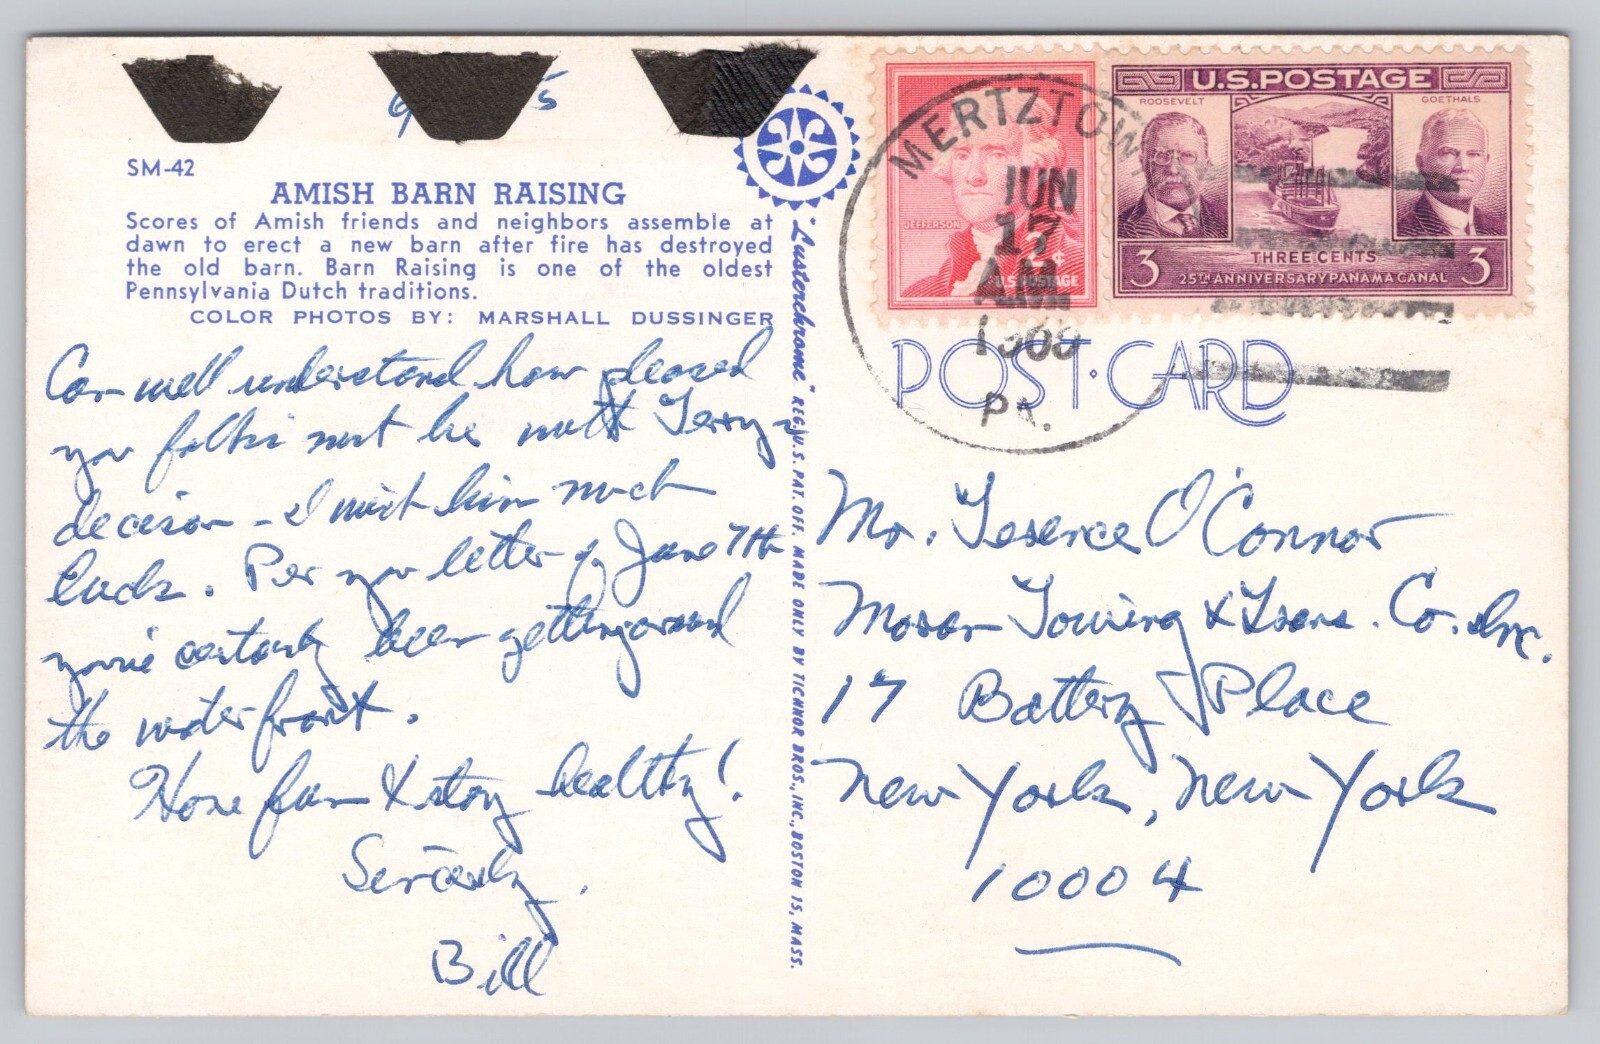 SM-42
AMISH BARN RAISING
Scores of Amish friends and neighbors assemble at
dawn to erect a new barn after fire has destroyed
the old barn. Barn Raising is one of the oldest
Pennsylvania Dutch traditions.
COLOR PHOTOS BY: MARSHALL DUSSINGER
Can well understand how pleased
you folks must be with Terry's
decision - I wish him much
luck. Per your letter of June 7th
you've certainly been getting around
the waterfront.
Have fun & stay healthy!
Sincerely,
Bill
"Lusterchrome" REG. U.S. PAT. OFF. MADE ONLY BY TICHNOR BROS., INC., BOSTON 15, MASS.
JEFFERSON
2¢
U.S. POSTAGE
U.S. POSTAGE
ROOSEVELT
GOETHALS
THREE CENTS
3 25TH ANNIVERSARY PANAMA CANAL 3
MERTZTOWN
JUN
17
A.M.
PA.
POST CARD
Mr. Terence O'Connor
Moran Towing & Trans. Co. Inc.
17 Battery Place
New York, New York
10004